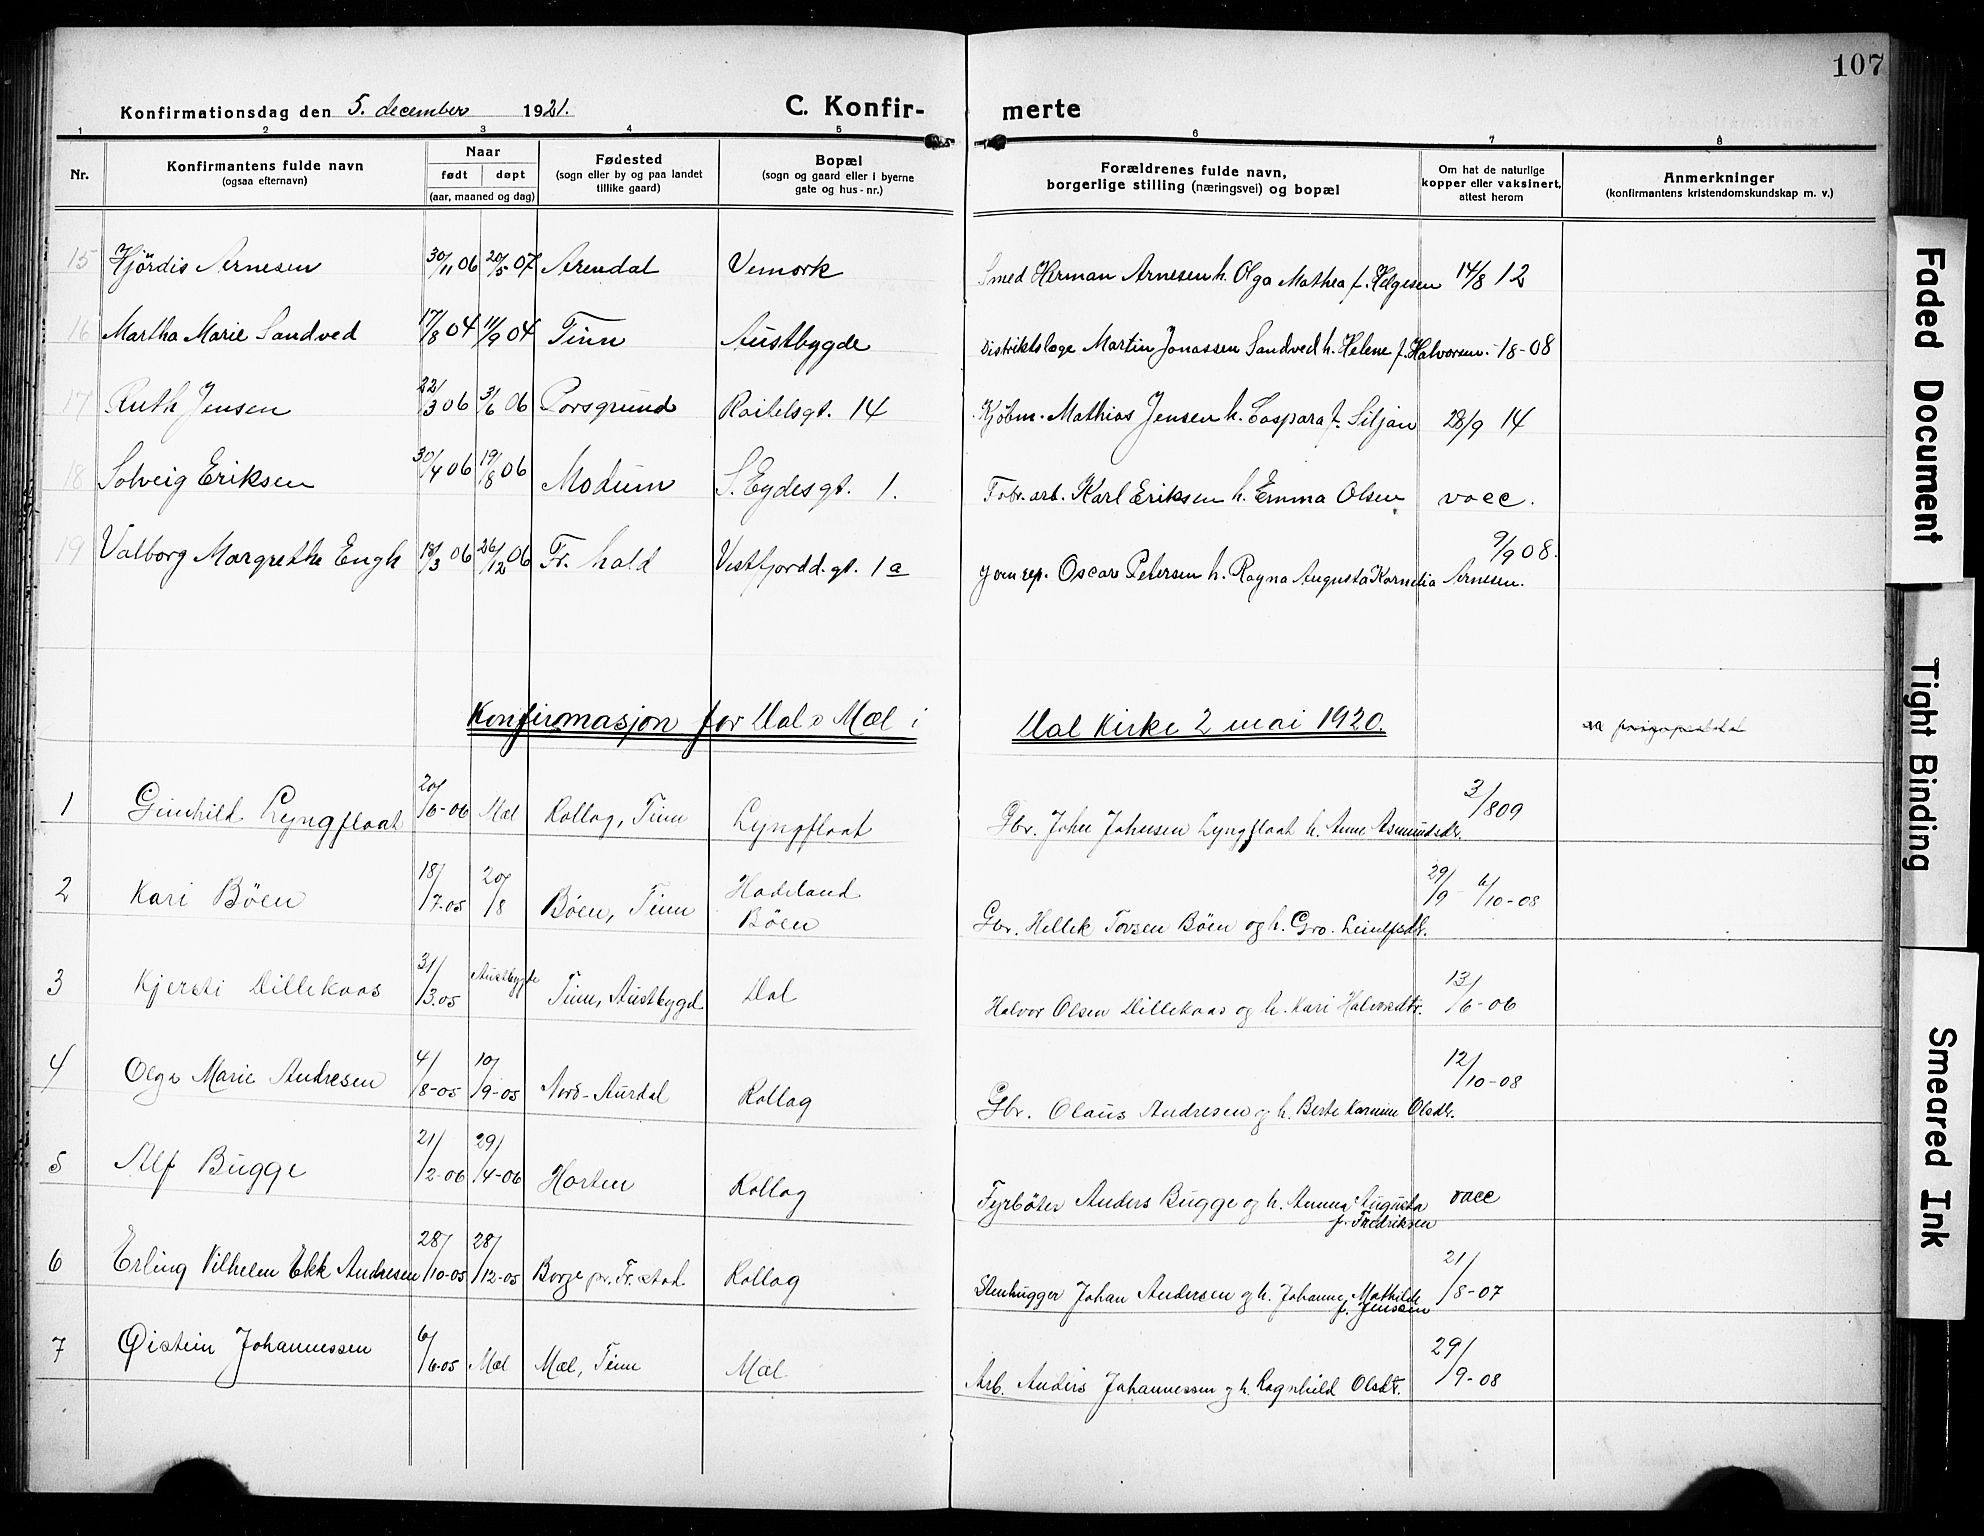 107
Konfirmationsdag den 5. december 1921.
C. Konfir- merte
1 2 3 4 5 6 7 8
Nr.
Konfirmantens fulde navn
(ogsaa efternavn)
Naar
født døpt
(aar, maaned og dag)
Fødested
(sogn eller by og paa landet
tillike gaard)
Bopæl
(sogn og gaard eller i byerne
gate og hus-nr.)
Forældrenes fulde navn,
borgerlige stilling (næringsvei) og bopæl
Om hat de naturlige
kopper eller vaksinert,
attest herom
Anmerkninger
(konfirmantens kristendomskundskap m. v.)
15 Hjördis Arnesen 30/11 06 20/5 07 Arendal Vemork Smed Herman Arnesen h. Olga Mathea f. Helgesen 14/8 12
16 Martha Marie Sandved 17/8 04 11/9 04 Tinn Austbygde Distriktslæge Martin Jonassen Sandved h. Helene f. Halvorsen - 18-08
17 Ruth Jensen 22/3 06 3/6 06 Porsgrund Raitelsgt. 14 Kjöbm. Mathias Jensen h. Caspara f. Siljan 28/9 14
18 Solveig Eriksen 30/4 06 19/8 06 Modum S. Eydesgt. 1. Fabr. arb. Karl Eriksen h. Emma Olsen vacc.
19 Valborg Margrethe Engh 18/3 06 26/12 06 Fr. hald Vestfjordd. gt. 1a Oscar Petersen h. Ragna Augusta Kornelia Arnesen. 9/9 08.
Konfirmasjon for Dal o Mæl i Dal Kirke 2 mai 1920.
1 Gunhild Lyngflaat 20/6-06 Mæl Rollag, Tinn Lyngflaat Gbr. John Johnsen Lyngflaat h. Anne Asmundsdr. 3/8 09
2 Kari Böen 18/7-05 20/8 Böen, Tinn Hadeland
Böen Gbr. Hellik Tovsen Böen og h. Gro Leiulfsdr. 29/9- 6/10-08
3 Kjersti Dillekaas 31/3.05 Austbygde Tinn, Austbygd Dal Halvor Olsen Dillekaas og h. Kari Halvorsdtr. 13/6-06
4 Olga Marie Andresen 4/8-05 10/9-05 Nord-Aurdal Rollag Gbr. Olaus Andresen og h. Berte Karnine Olsdr. 12/10-08
5 Alf Bugge 21/2-06 29/4-06 Horten Rollag Fyrböter Anders Bugge og h. Anna Augusta
f. Fredriksen vacc
6 Erling Vilhelm Ekk Andresen 28/10-05 28/12-05 Borge pr. Fr.stad Rollag Stenhugger Johan Andersen og h. Johanne Mathilde
f. Jensen 21/8-07
7 Øistein Johannessen 6/6-05 Mæl Mæl, Tinn Mæl Arb. Anders Johannessen og h. Ragnhild Olsdtr. 29/9-08
Faded Document
Tight Binding
Smeared Ink